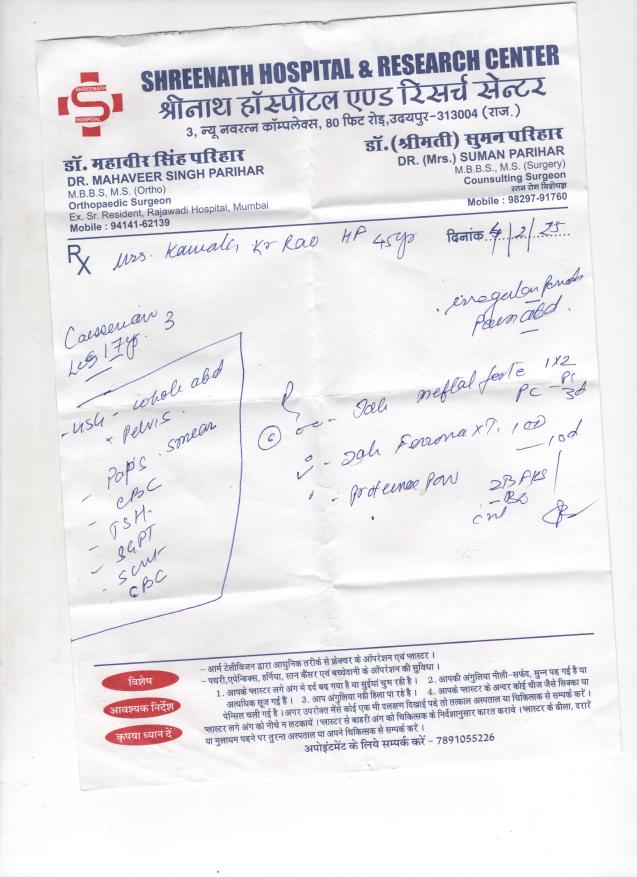 SHREENATH
S
HOSPITAL
SHREENATH HOSPITAL & RESEARCH CENTER
श्रीनाथ हॉस्पीटल एण्ड रिसर्च सेन्टर
3, न्यू नवरत्न कॉम्पलेक्स, 80 फिट रोड़, उदयपुर-313004 (राज.)
डॉ. महावीर सिंह परिहार
DR. MAHAVEER SINGH PARIHAR
M.B.B.S, M.S. (Ortho)
Orthopaedic Surgeon
Ex. Sr. Resident, Rajawadi Hospital, Mumbai
Mobile : 94141-62139
डॉ. (श्रीमती) सुमन परिहार
DR. (Mrs.) SUMAN PARIHAR
M.B.B.S., M.S. (Surgery)
Counsulting Surgeon
स्तन रोग विशेषज्ञ
Mobile : 98297-91760
Rx Mrs. Kamala Kr Rao 45yr
दिनांक 4/2/25
irregular Periods
Pain abd.
Caesserian 3
17yr.
- USG - whole abd
+ Pelvis
- Pap's smear
- CBC
- TSH.
- SGPT
- CBC
Tab meftal forte 1x2
PC 3d
10d
विशेष
आवश्यक निर्देश
कृपया ध्यान दें
- आर्म टेलीविजन द्वारा आधुनिक तरीके से फ्रेक्चर के ऑपरेशन एवं प्लास्टर ।
- पथरी, एपेन्डिक्स, हर्निया, स्तन कैंसर एवं बच्चेदानी के ऑपरेशन की सुविधा ।
1. आपके प्लास्टर लगे अंग मे दर्द बढ़ गया है या सुईयां चुभ रही है । 2. आपकी अंगुलिया नीली-सफेद, सुन्न पड़ गई है या
अत्यधिक सूज गई हैं । 3. आप अंगुलिया नहीं हिला पा रहे है । 4. आपके प्लास्टर के अन्दर कोई चीज जैसे सिक्का या
पेन्सिल चली गई है । अगर उपरोक्त में से कोई एक भी लक्षण दिखाई पड़े तो तत्काल अस्पताल या चिकित्सक से सम्पर्क करें ।
प्लास्टर लगे अंग को नीचे न लटकायें । प्लास्टर से बाहरी अंग को चिकित्सक के निर्देशानुसार कारत करावे । प्लास्टर के ढीला, दरारें
या मुलायम पड़ने पर तुरन्त अस्पताल या अपने चिकित्सक से सम्पर्क करें ।
अपोइंटमेंट के लिये सम्पर्क करें - 7891055226